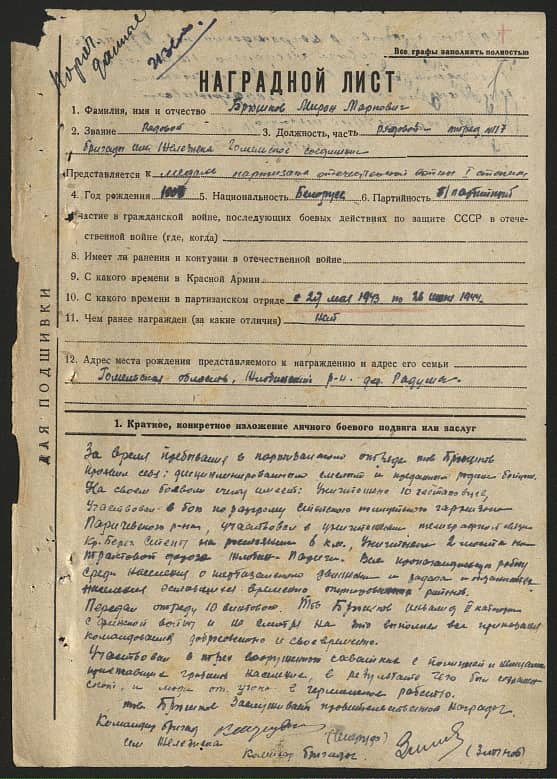 Все графы заполнять полностью
НАГРАДНОЙ ЛИСТ
1. Фамилия, имя и отчество Брюшков Мирон Маркович
2. Звание Рядовой 3. Должность, часть рядовой отряд №117
бригады им. Железняка Гомельское соединение
Представляется к медаль партизана отечественной войны I степени
4. Год рождения 5. Национальность Белорус 6. Партийность б/партийный
Участие в гражданской войне, последующих боевых действиях по защите СССР в отече-
ственной войне (где, когда)
8. Имеет ли ранения и контузии в отечественной войне
9. С какого времени в Красной Армии
10. С какого времени в партизанском отряде с 27 мая 1943 по 26 июня 1944
11. Чем ранее награжден (за какие отличия) Нет
12. Адрес места рождения представляемого к награждению и адрес его семьи
Гомельская область, Жлобинский р-н. дер. Радуша
ДЛЯ ПОДШИВКИ
1. Краткое, конкретное изложение личного боевого подвига или заслуг
За время пребывания в партизанском отряде тов Брюшков
проявил себя: дисциплинированным и преданным родине бойцом.
На своем боевом счету имеет: Уничтожено 10
Участвовал в бою по разгрому гарнизона
Паричского р-на, участвовал в уничтожении телеграфной связи
Кр. Берег на расстоянии в км., Уничтожил 2 моста на
трактовой дороге Жлобин - Паричи. Вел пропагандистскую работу
среди населения о партизанском движении и задача
населения временно оккупированных районов.
Передал отряду 10 винтовок. Тов Брюшков инвалид II категории
с финской войны и не смотря на это выполнял все приказания
командования добросовестно и своевременно.
Участвовал в трех с полицией и немцами
населения, в результате чего был сохранен
скот, и люди от угона в германское рабство.
тов Брюшков Заслуживает правительственной награды.
Командир бригады
им Железняка
Комиссар бригады